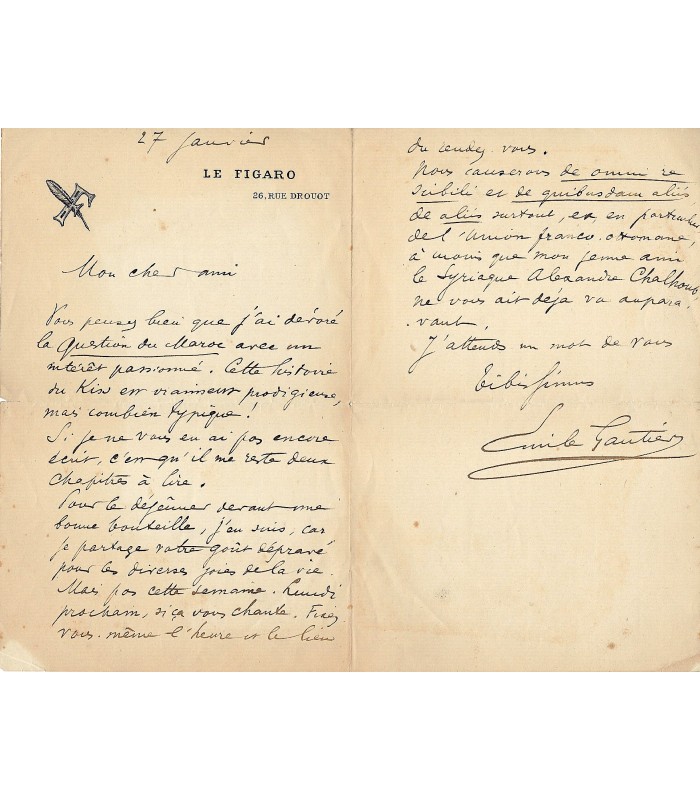 27 Janvier
LE FIGARO
26, RUE DROUOT
Mon cher ami
Vous pensez bien que j'ai dévoré
la Question du Maroc avec un
intérêt passionné. Cette histoire
du est vraiment prodigieuse,
mais combien typique !
Si je ne vous en ai pas encore
écrit, c'est qu'il me reste deux
chapitres à lire.
Pour le déjeûner devant une
bonne bouteille, j'en suis, car
je partage votre goût dépravé
pour les diverses joies de la vie.
Mais pas cette semaine. Lundi
prochain, si ça vous chante. Fixez
vous-même l'heure et le lieu
du rendez-vous.
Nous causerons de omni re
scibili et de quibusdam aliis
de aliis surtout, et, en particulier
de l'Union franco-ottomane,
à moins que mon jeune ami
le Syriaque Alexandre Chalhoub
ne vous ait déjà vu aupara-
vant.
J'attends un mot de vous
Tibissimus
Emile Gautier